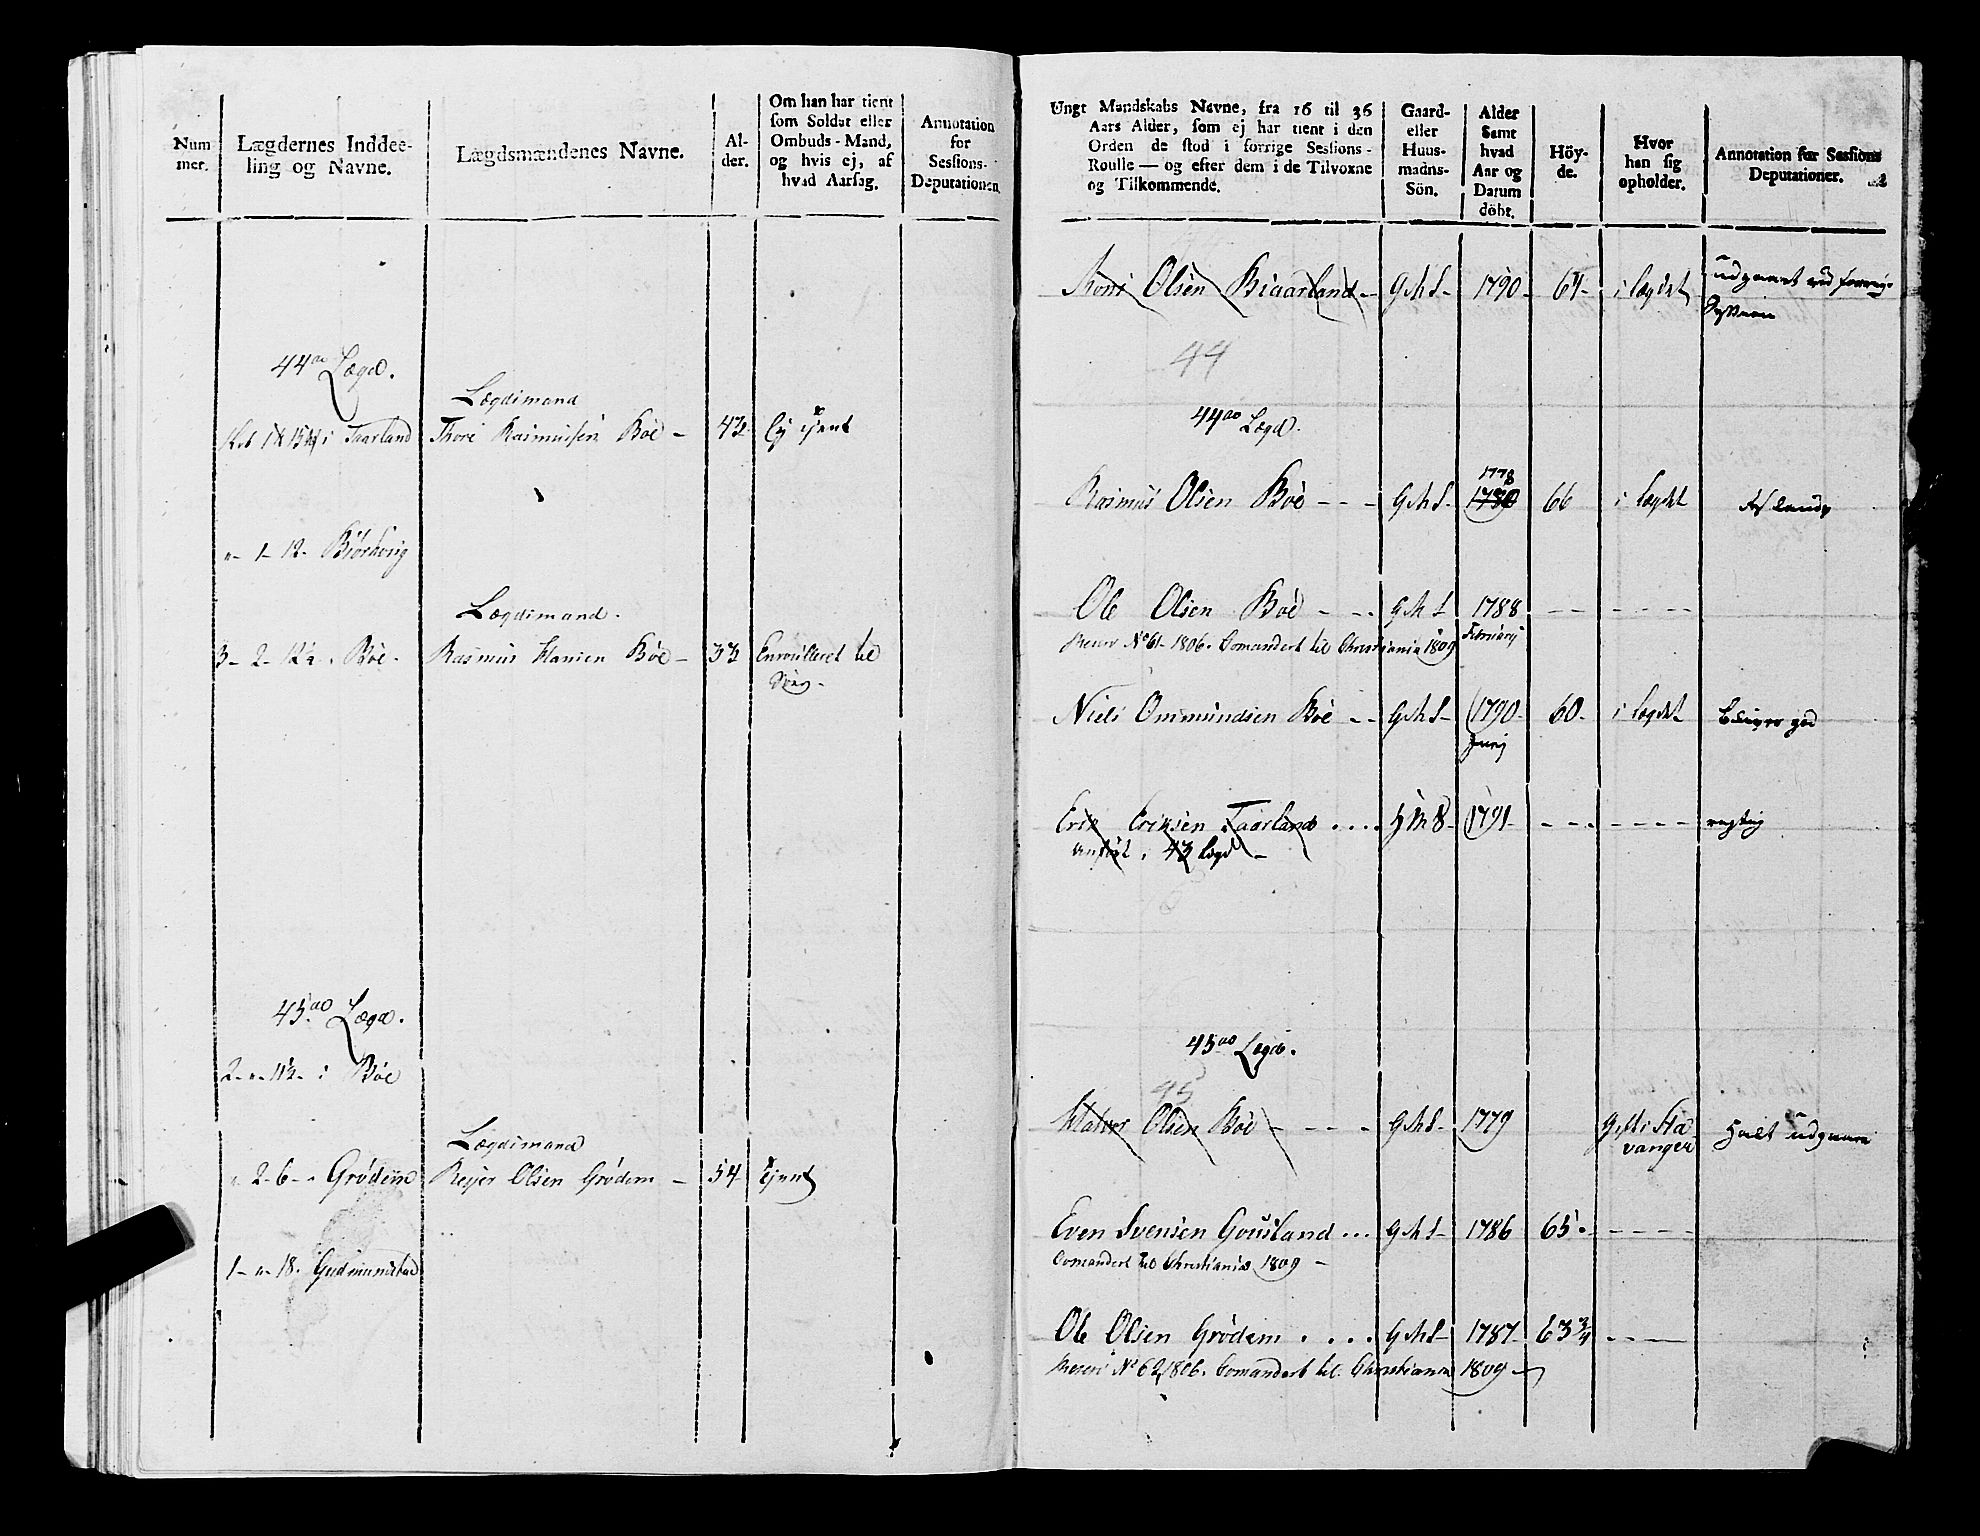 Num
mer.
Lægdernes Inddee-
ling og Navne.
Lægdsmændenes Navne.
Al-
der.
Om han har tient
som Soldat eller
Ombuds-Mand,
og hvis ej, af
hvad Aarsag.
Annotation
for
Sessions-
Deputationen
44de Lægd.
Lægdsmand
i Taarland Thore Rasmussen Böe - 43 Ej tjent
1 - 12 -
Lægdsmand.
3 - 2 - Böe - Rasmus Hansen Böe - 33 Enroulleret til
Söes -
45de Lægd.
2 - i Böe
Lægdsmand
2 - 6 - Grödem Reyer Olsen Grödem - 54 tjent
1 - 18. Gudmundstad
Ungt Mandskabs Navne, fra 16 til 36
Aars Alder, som ej har tient i den
Orden de stod i forrige Sessions-
Roulle — og efter dem i de Tilvoxne
og Tilkommende.
Gaard-
eller
Huus-
mands-
Sön.
Alder
Samt
hvad
Aar og
Datum
döbt.
Höy-
de.
Hvor
han sig
opholder.
Annotation for Sessions
Deputationer.
Olsen Biaarland - G M S - 1790 - i lægdet udgaaet ved forrig
44
44de Lægd.
1778
Rasmus Olsen Böe - - - G M S - 1780 66 i lægdet
Ole Olsen Böe - - G M S 1788 - - - - - -
Reserv No 61 - 1806. Comandert til Christiania 1809 Februarij
Niels Ommundsen Böe - - G M S - 1790 - 60 - i lægdet Bliver god
Junij
Erik Eriksen Taarland .... H M S - 1791 - - - - - - - rigtig
Anfört i 43 Lægd -
45de Lægd.
45
Halvor Olsen Böe - - - - G M S - 1779 Gift i Sta
vanger Halt udgaaer
Even Svensen Gousland ... G M S - 1786 65 - - - - -
Comandert til Christiania 1809 -
Ole Olsen Grödem .... G M S - 1787 - 63 3/4 - - -
Reserv No 62, 1806. Comandert til Christiania 1809 -